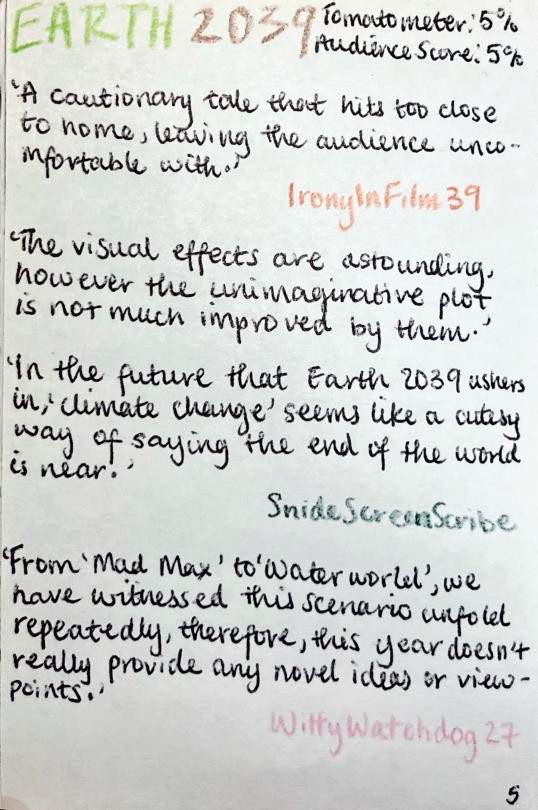 EARTH 2039 Tomatometer: 5%
Audience Score: 5%
'A cautionary tale that hits too close
to home, leaving the audience unco-
mfortable with.'
IronyInFilm39
'The visual effects are astounding,
however the unimaginative plot
is not much improved by them.'
'In the future that Earth 2039 ushers
in, 'climate change' seems like a cutesy
way of saying the end of the world
is near.'
SnideScreenScribe
'From 'Mad Max' to 'Waterworld', we
have witnessed this scenario unfold
repeatedly, therefore, this year doesn't
really provide any novel ideas or view-
points.'
WittyWatchdog27
5